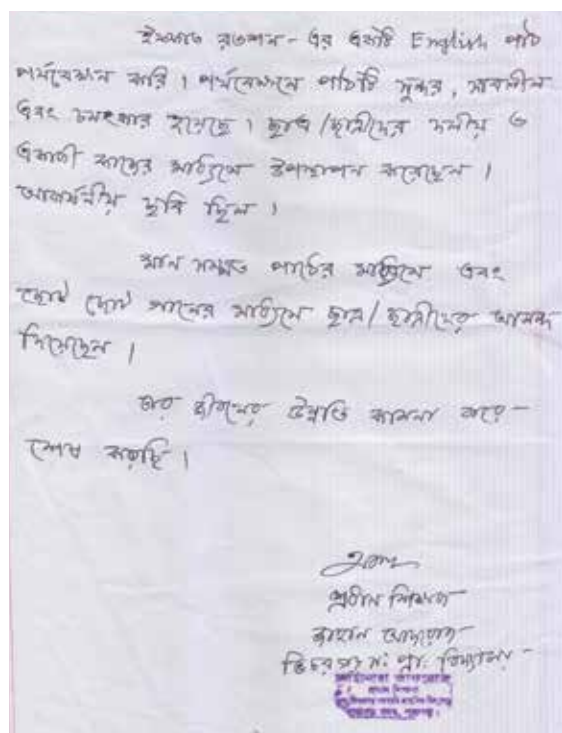 ইফফাত রওশন - এর একটি English পাঠ
পর্যবেক্ষন করি। পর্যবেক্ষনে পাঠটি সুন্দর, সাবলীল
এবং চমৎকার হয়েছে। ছাত্র/ছাত্রীদের দলীয় ও
একাকী কাজের মাধ্যমে উপস্থাপন করেছেন।
আকর্ষনীয় ছবি ছিল।
মান সম্মত পাঠের মাধ্যমে এবং
ছোট ছোট গানের মাধ্যমে ছাত্র/ছাত্রীদের আনন্দ
দিয়েছেন।
তার জীবনের উন্নতি কামনা করে -
শেষ করছি।
প্রধান শিক্ষক
প্রাঃ বিদ্যালয়
প্রধান শিক্ষক